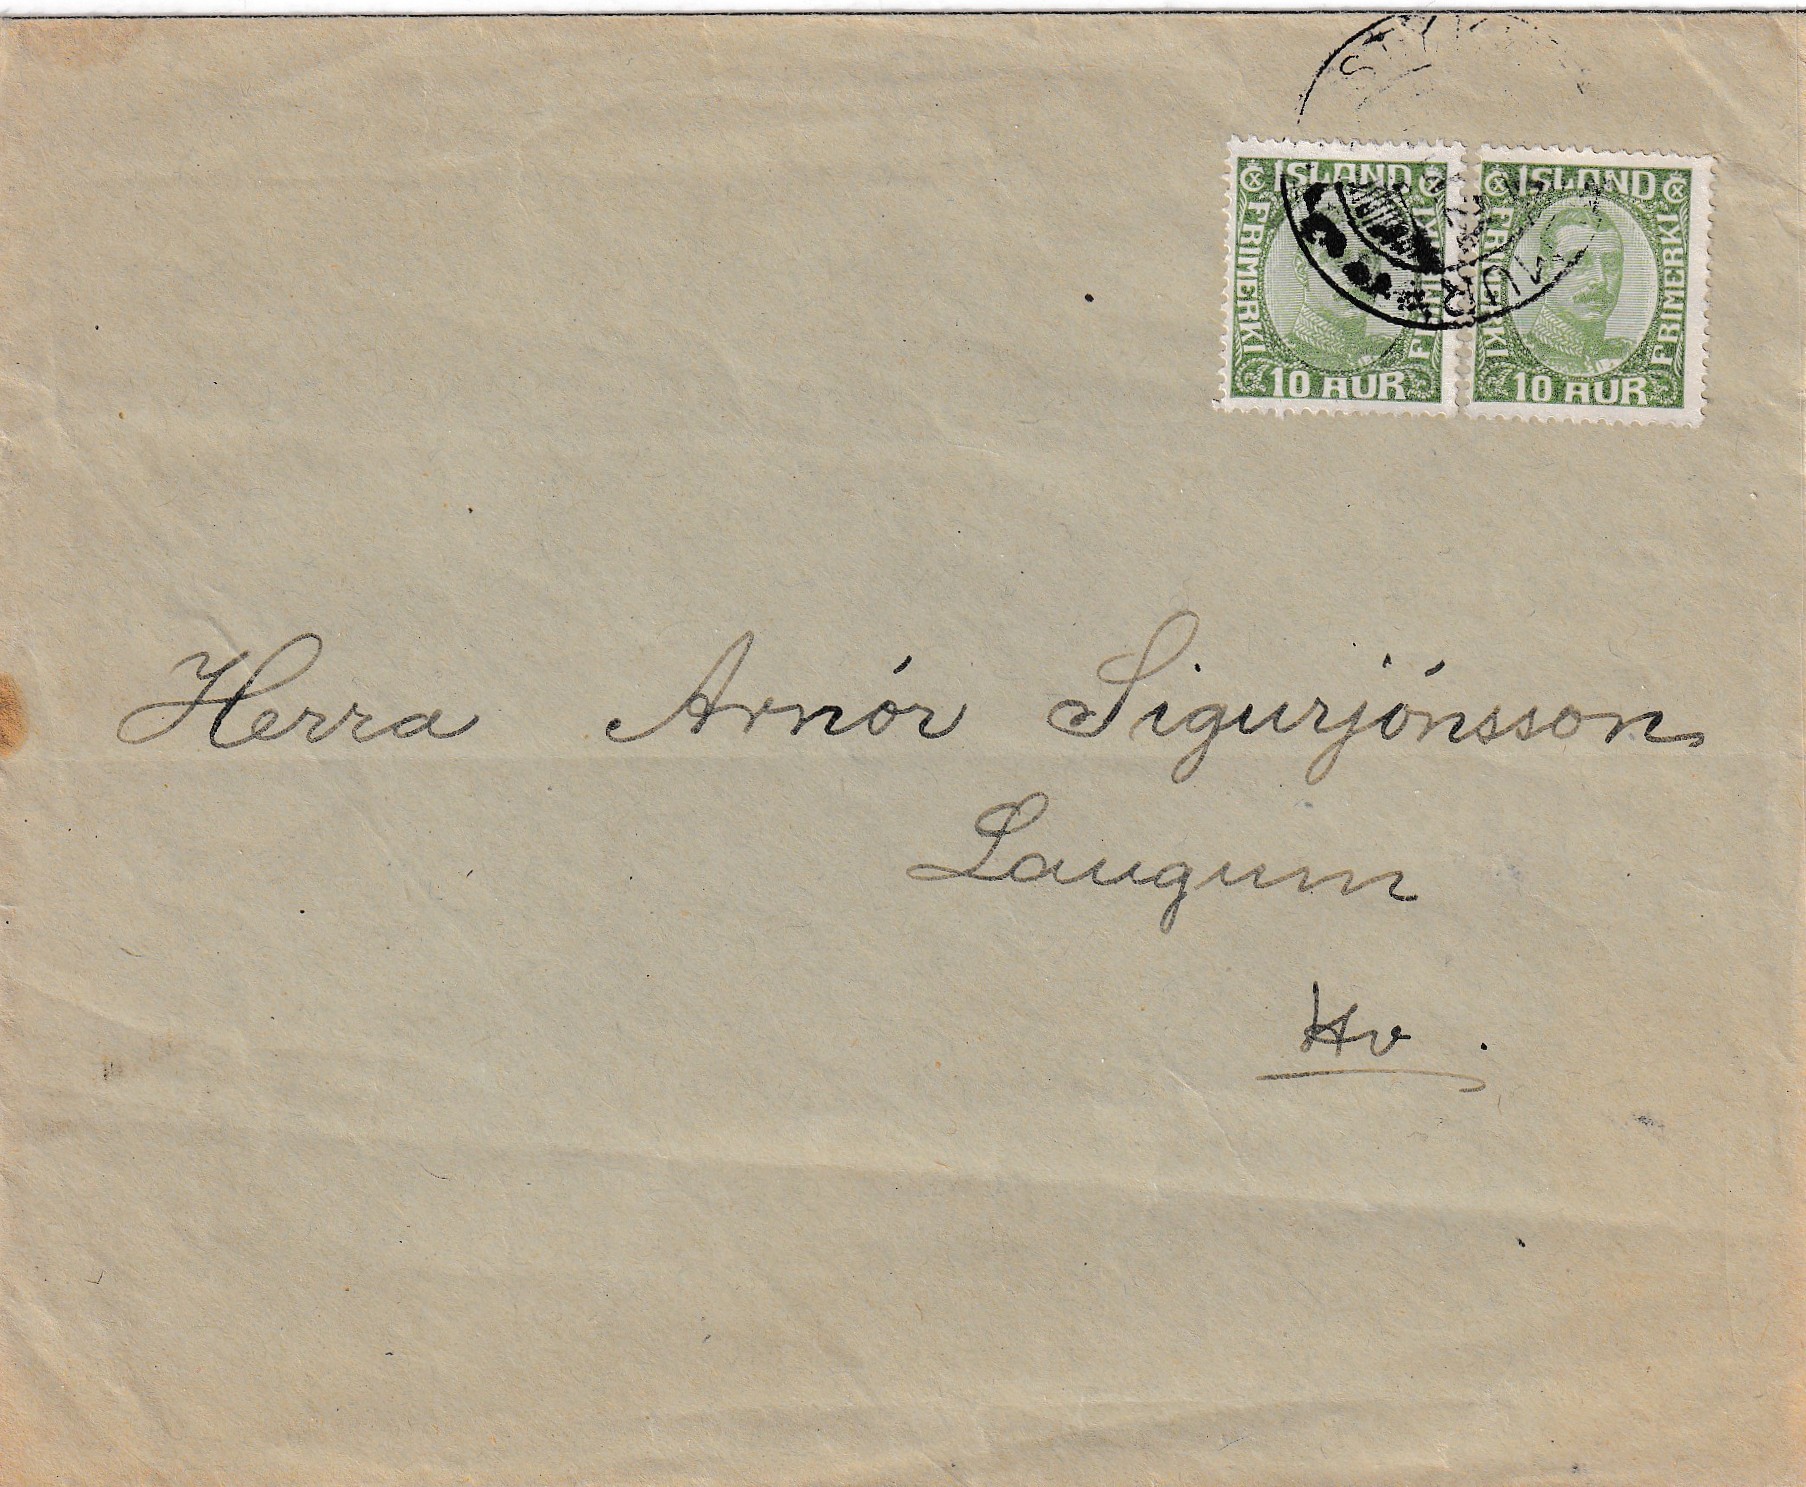 ISLAND
FRIMERKI
FRIMERKI
10 AUR
ISLAND
FRIMERKI
FRIMERKI
10 AUR
Herra Arnór Sigurjónsson
Laugum
Hv.